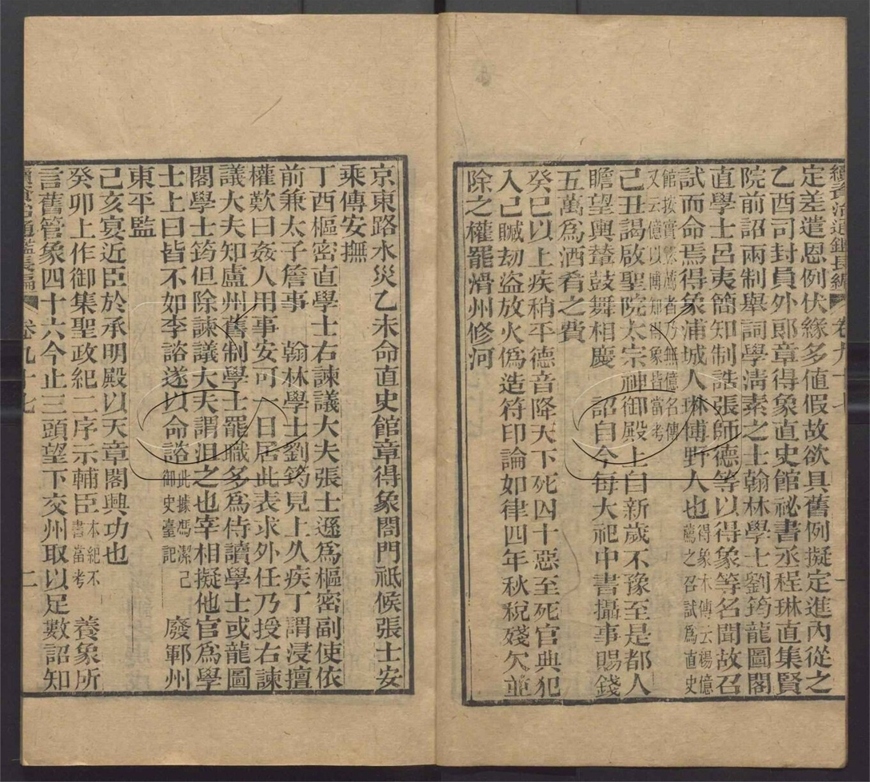 續資治通鑑長編 卷九十七 一
定差遣恩例伏緣多値假故欲具舊例擬定進內從之
乙酉司封員外郎章得象直史館祕書丞程琳直集賢
院前詔兩制舉詞學淸素之士翰林學士劉筠龍圖閣
直學士呂夷簡知制誥張師德等以得象等名聞故召
試而命焉得象浦城人琳博野人也得象本傳云楊億薦之召試爲直史
館按實錄薦者乃無億名傳又云億以博知得象皆當考
己丑謁啟聖院太宗神御殿 上自新歲不豫至是都人
瞻望輿輦鼓舞相慶 詔自今每大祀中書攝事賜錢
五萬爲酒肴之費
癸巳以上疾稍平德音降天下死囚十惡至死官典犯
入己贓劫盜放火僞造符印論如律四年秋稅殘欠並
除之權罷滑州修河
京東路水災乙未命直史館章得象閤門祗候張士安
乘傳安撫
丁酉樞密直學士右諫議大夫張士遜爲樞密副使依
前兼太子詹事 翰林學士劉筠見上久疾丁謂浸擅
權歎曰姦人用事安可一日居此表求外任乃授右諫
議大夫知廬州舊制學士罷職多爲侍讀學士或龍圖
閣學士筠但除諫議大夫謂沮之也宰相擬他官爲學
士上曰皆不如李諮遂以命諮此據馮潔己御史臺記 廢鄆州
東平監
己亥宴近臣於承明殿以天章閣興功也
癸卯上作御集聖政紀二序示輔臣本紀不書當考 養象所
言舊管象四十六今止三頭望下交州取以足數詔知
續資治通鑑長編 卷九十七 二